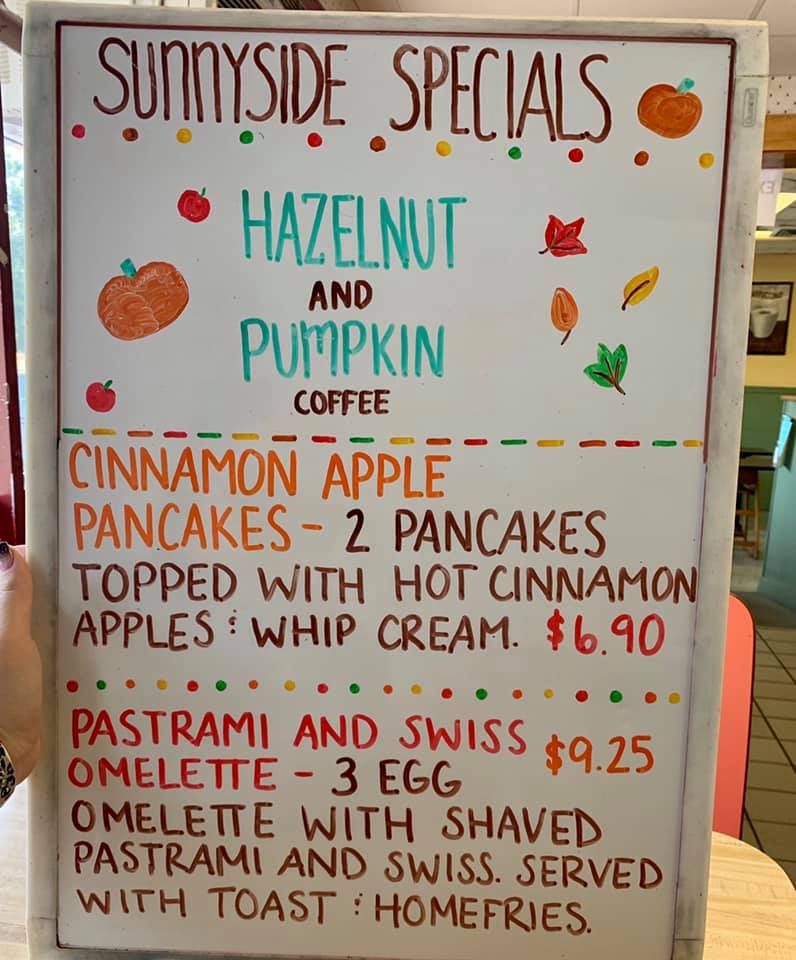 SUNNYSIDE SPECIALS
HAZELNUT
AND
PUMPKIN
COFFEE
CINNAMON APPLE
PANCAKES - 2 PANCAKES
TOPPED WITH HOT CINNAMON
APPLES & WHIP CREAM. $6.90
PASTRAMI AND SWISS $9.25
OMELETTE - 3 EGG
OMELETTE WITH SHAVED
PASTRAMI AND SWISS. SERVED
WITH TOAST & HOMEFRIES.